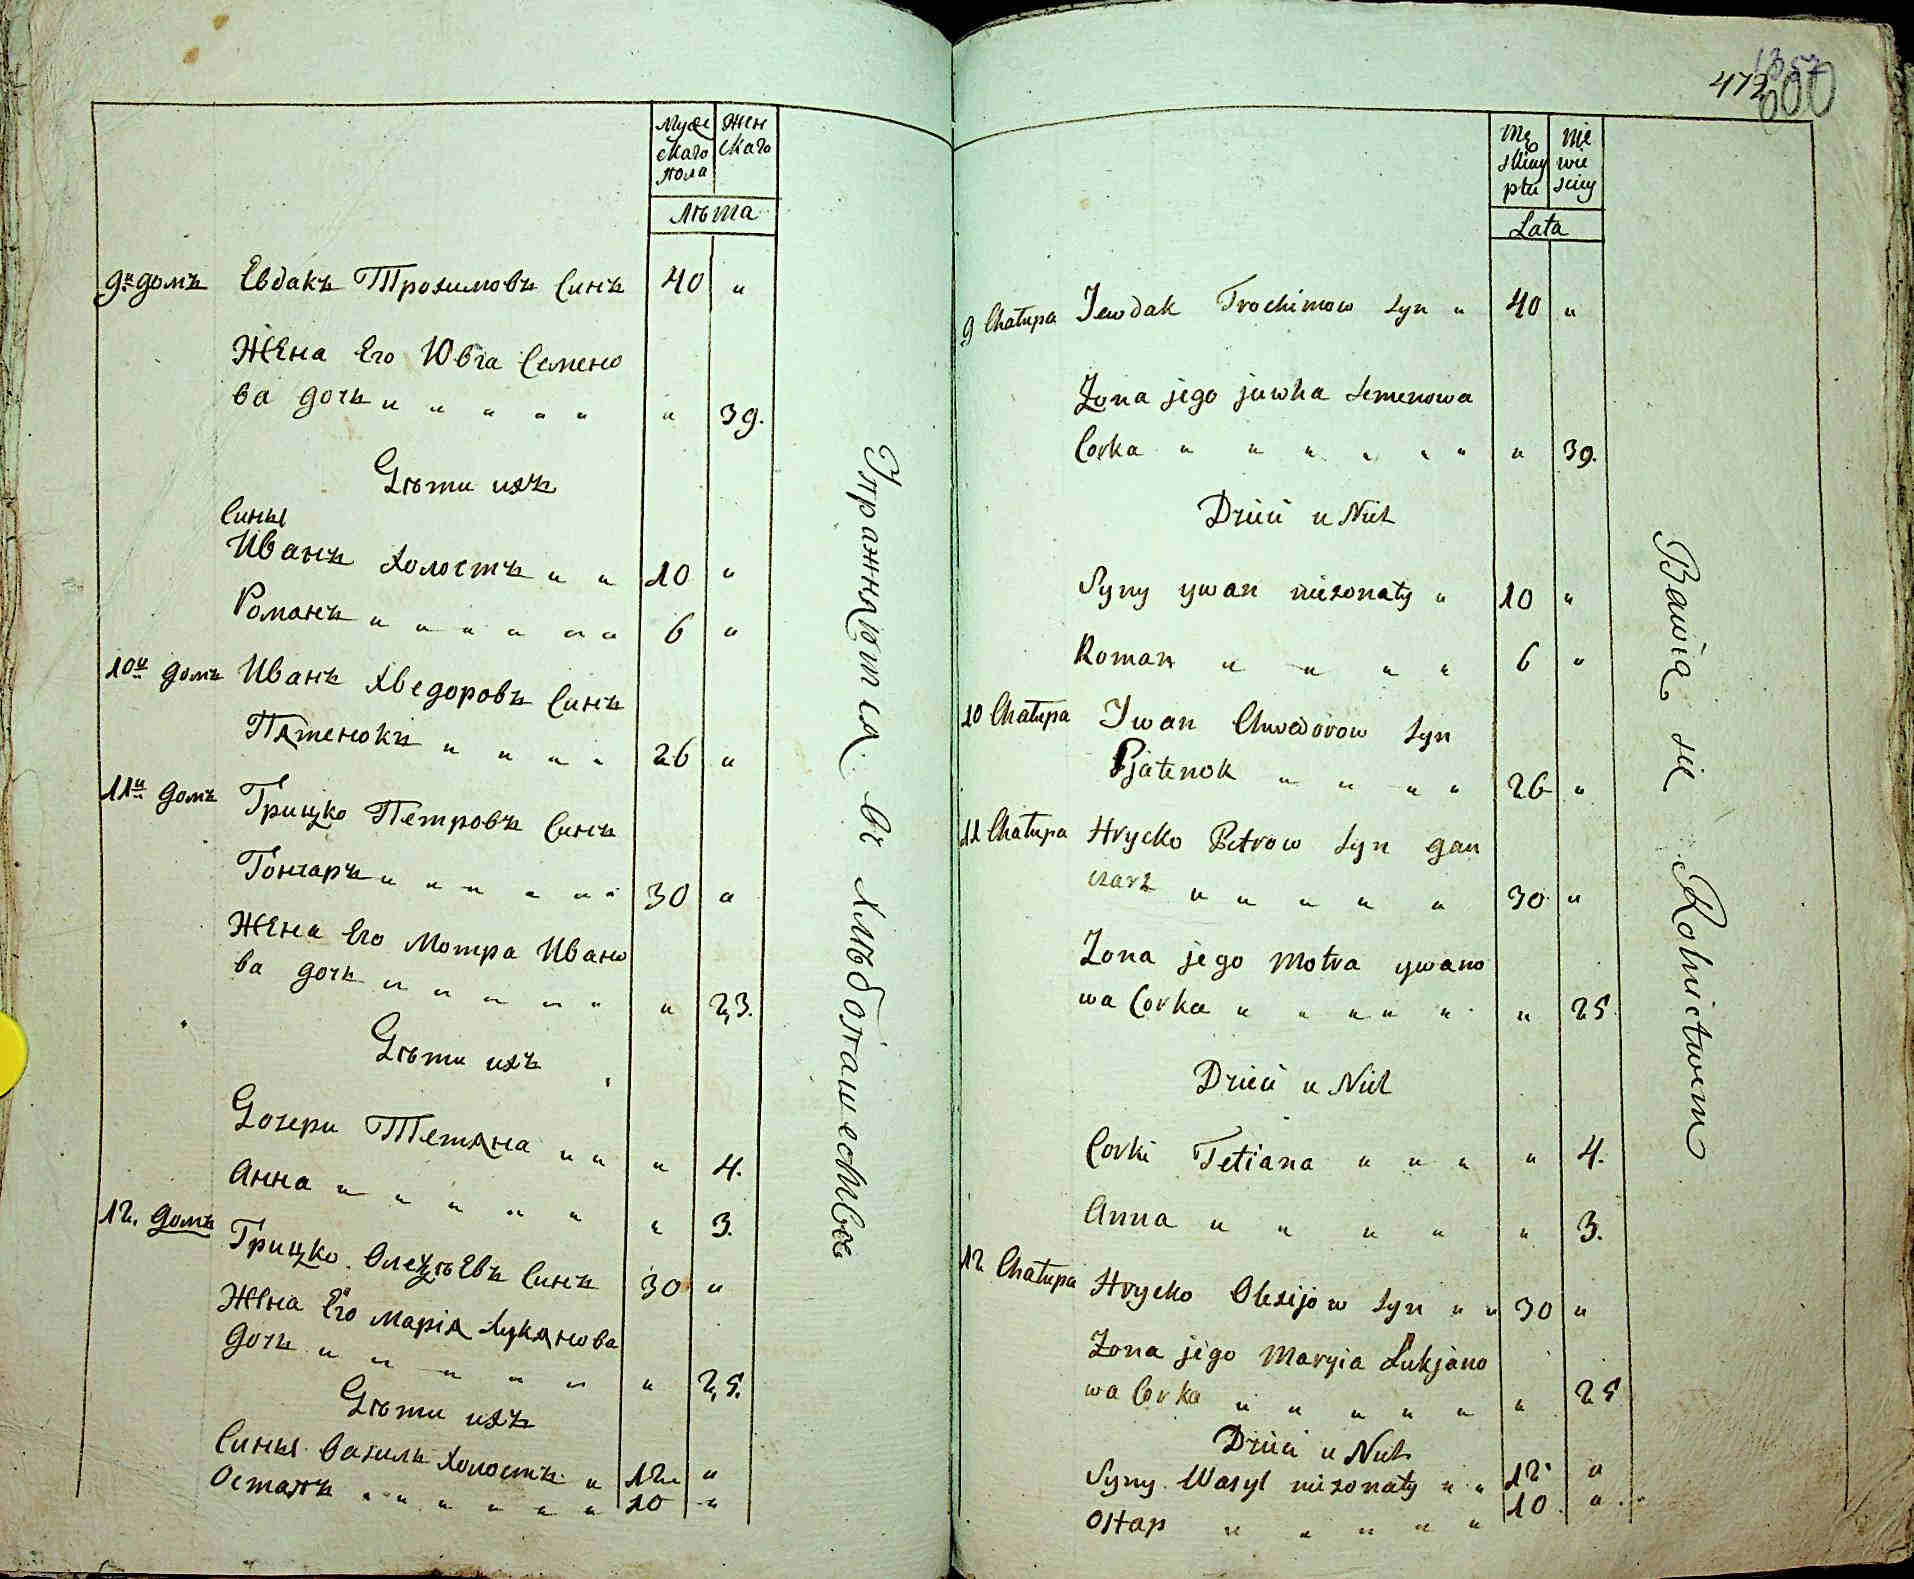 Муже Жен
скаго скаго
пола
Лѣта
9й домъ Евдакъ Трохимовъ Синъ 40 "
Жена Его Ювга Семено
ва дочь " " " " " " 39.
Дѣти ихъ
Сины
Иванъ холостъ " " 10 "
Романъ " " " " " " 6 "
10й домъ Иванъ Хведоровъ Синъ
Пятенокъ " " " " 26 "
11й домъ Грицко Петровъ Синъ
Гончаръ " " " " " " 30 "
Жена Его Мотра Ивано
ва дочь " " " " " " 23.
Дѣти ихъ
Дочери Тетяна " " " 4.
Анна " " " " " " 3.
12. домъ Грицко Олексѣевъ Синъ 30 "
Жена Его Марія Лукянова
дочь " " " " " " 25.
Дѣти ихъ
Сины Василь холостъ " 12 "
Остапъ " " " " " " 10 "
Упражняются въ хлѣбопашествѣ
472
Mę nie
skiey wie
płci sciey
Lata
9 Chałupa Jewdak Trochimow syn " 40 "
Zona jego juwha Semenowa
Corka " " " " " " " 39.
Dzieci u Nich
Syny ywan niezonaty " 10 "
Roman " " " " 6 "
10 Chałupa Iwan Chwedorow syn
Pjatenok " " " " 26 "
11 Chałupa Hrycko Petrow syn gan
czarz " " " " " 30 "
Zona jego Motra ywano
wa Corka " " " " " " 25.
Dzieci u Nich
Corki Tetiana " " " " 4.
Anna " " " " " 3.
12 Chałupa Hrycko Olexijow syn " " 30 "
Zona jego Maryia Łukjano
wa Corka " " " " " " 25
Dzieci u Nich
Syny Wasyl niezonaty " " 12 "
Ostap " " " " " 10 "
Bawią się Rolnictwem